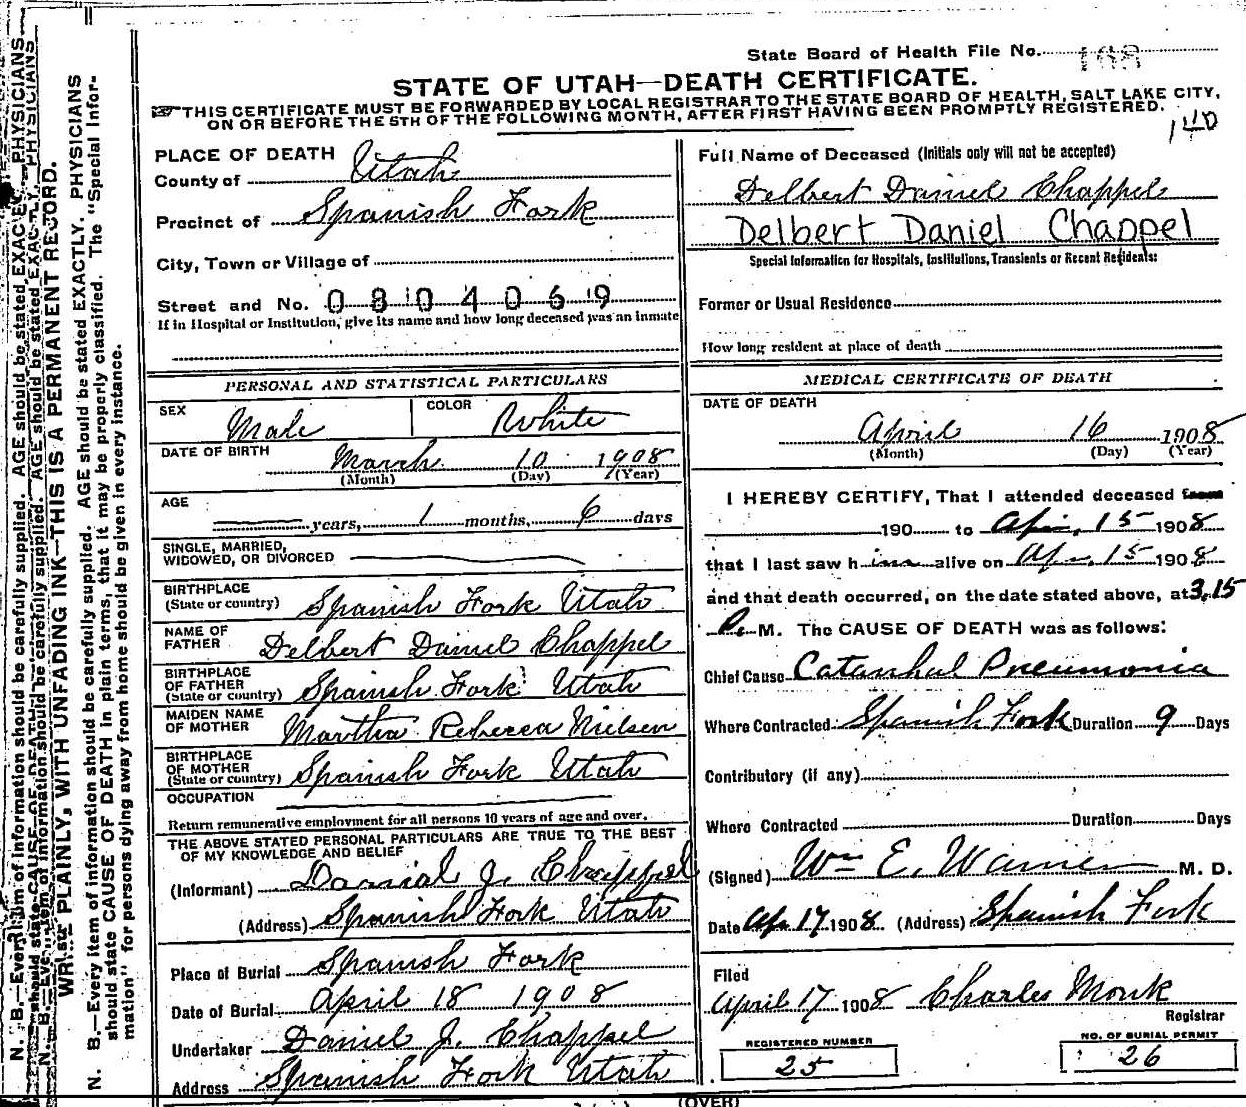 State Board of Health File No. 168
STATE OF UTAH—DEATH CERTIFICATE.
THIS CERTIFICATE MUST BE FORWARDED BY LOCAL REGISTRAR TO THE STATE BOARD OF HEALTH, SALT LAKE CITY,
ON OR BEFORE THE 5TH OF THE FOLLOWING MONTH, AFTER FIRST HAVING BEEN PROMPTLY REGISTERED.
140
PLACE OF DEATH
County of Utah
Precinct of Spanish Fork
City, Town or Village of
Street and No. 0804069
If in Hospital or Institution, give its name and how long deceased was an inmate
Full Name of Deceased (Initials only will not be accepted)
Delbert Daniel Chappel
Delbert Daniel Chappel
Special Information for Hospitals, Institutions, Transients or Recent Residents:
Former or Usual Residence
How long resident at place of death
PERSONAL AND STATISTICAL PARTICULARS
SEX Male COLOR White
DATE OF BIRTH March 10 1908
(Month) (Day) (Year)
AGE
years, 1 months, 6 days
SINGLE, MARRIED,
WIDOWED, OR DIVORCED
BIRTHPLACE
(State or country) Spanish Fork Utah
NAME OF
FATHER Delbert Daniel Chappel
BIRTHPLACE
OF FATHER
(State or country) Spanish Fork Utah
MAIDEN NAME
OF MOTHER Martha Rebecca Nielsen
BIRTHPLACE
OF MOTHER
(State or country) Spanish Fork Utah
OCCUPATION
Return remunerative employment for all persons 10 years of age and over.
THE ABOVE STATED PERSONAL PARTICULARS ARE TRUE TO THE BEST
OF MY KNOWLEDGE AND BELIEF
(Informant) Danial J. Chappel
(Address) Spanish Fork Utah
Place of Burial Spanish Fork
Date of Burial April 18 1908
Undertaker Daniel J. Chappel
Address Spanish Fork Utah
MEDICAL CERTIFICATE OF DEATH
DATE OF DEATH
April 16 1908
(Month) (Day) (Year)
I HEREBY CERTIFY, That I attended deceased from
190 to Apr. 15 1908
that I last saw him alive on Apr. 15 1908
and that death occurred, on the date stated above, at 3.15
P. M. The CAUSE OF DEATH was as follows:
Chief Cause Catarrhal Pneumonia
Where Contracted Spanish Fork Duration 9 Days
Contributory (if any)
Where Contracted Duration Days
(Signed) Wm E. Warner M. D.
Date Apr 17 1908 (Address) Spanish Fork
Filed
April 17 1908 Charles Monk
Registrar
REGISTERED NUMBER
25
NO. OF BURIAL PERMIT
26
(OVER)
WRITE PLAINLY, WITH UNFADING INK—THIS IS A PERMANENT RECORD.
N. B.—Every item of information should be carefully supplied. AGE should be stated EXACTLY. PHYSICIANS
should state CAUSE OF DEATH in plain terms, that it may be properly classified. The "Special Infor-
mation" for persons dying away from home should be given in every instance.